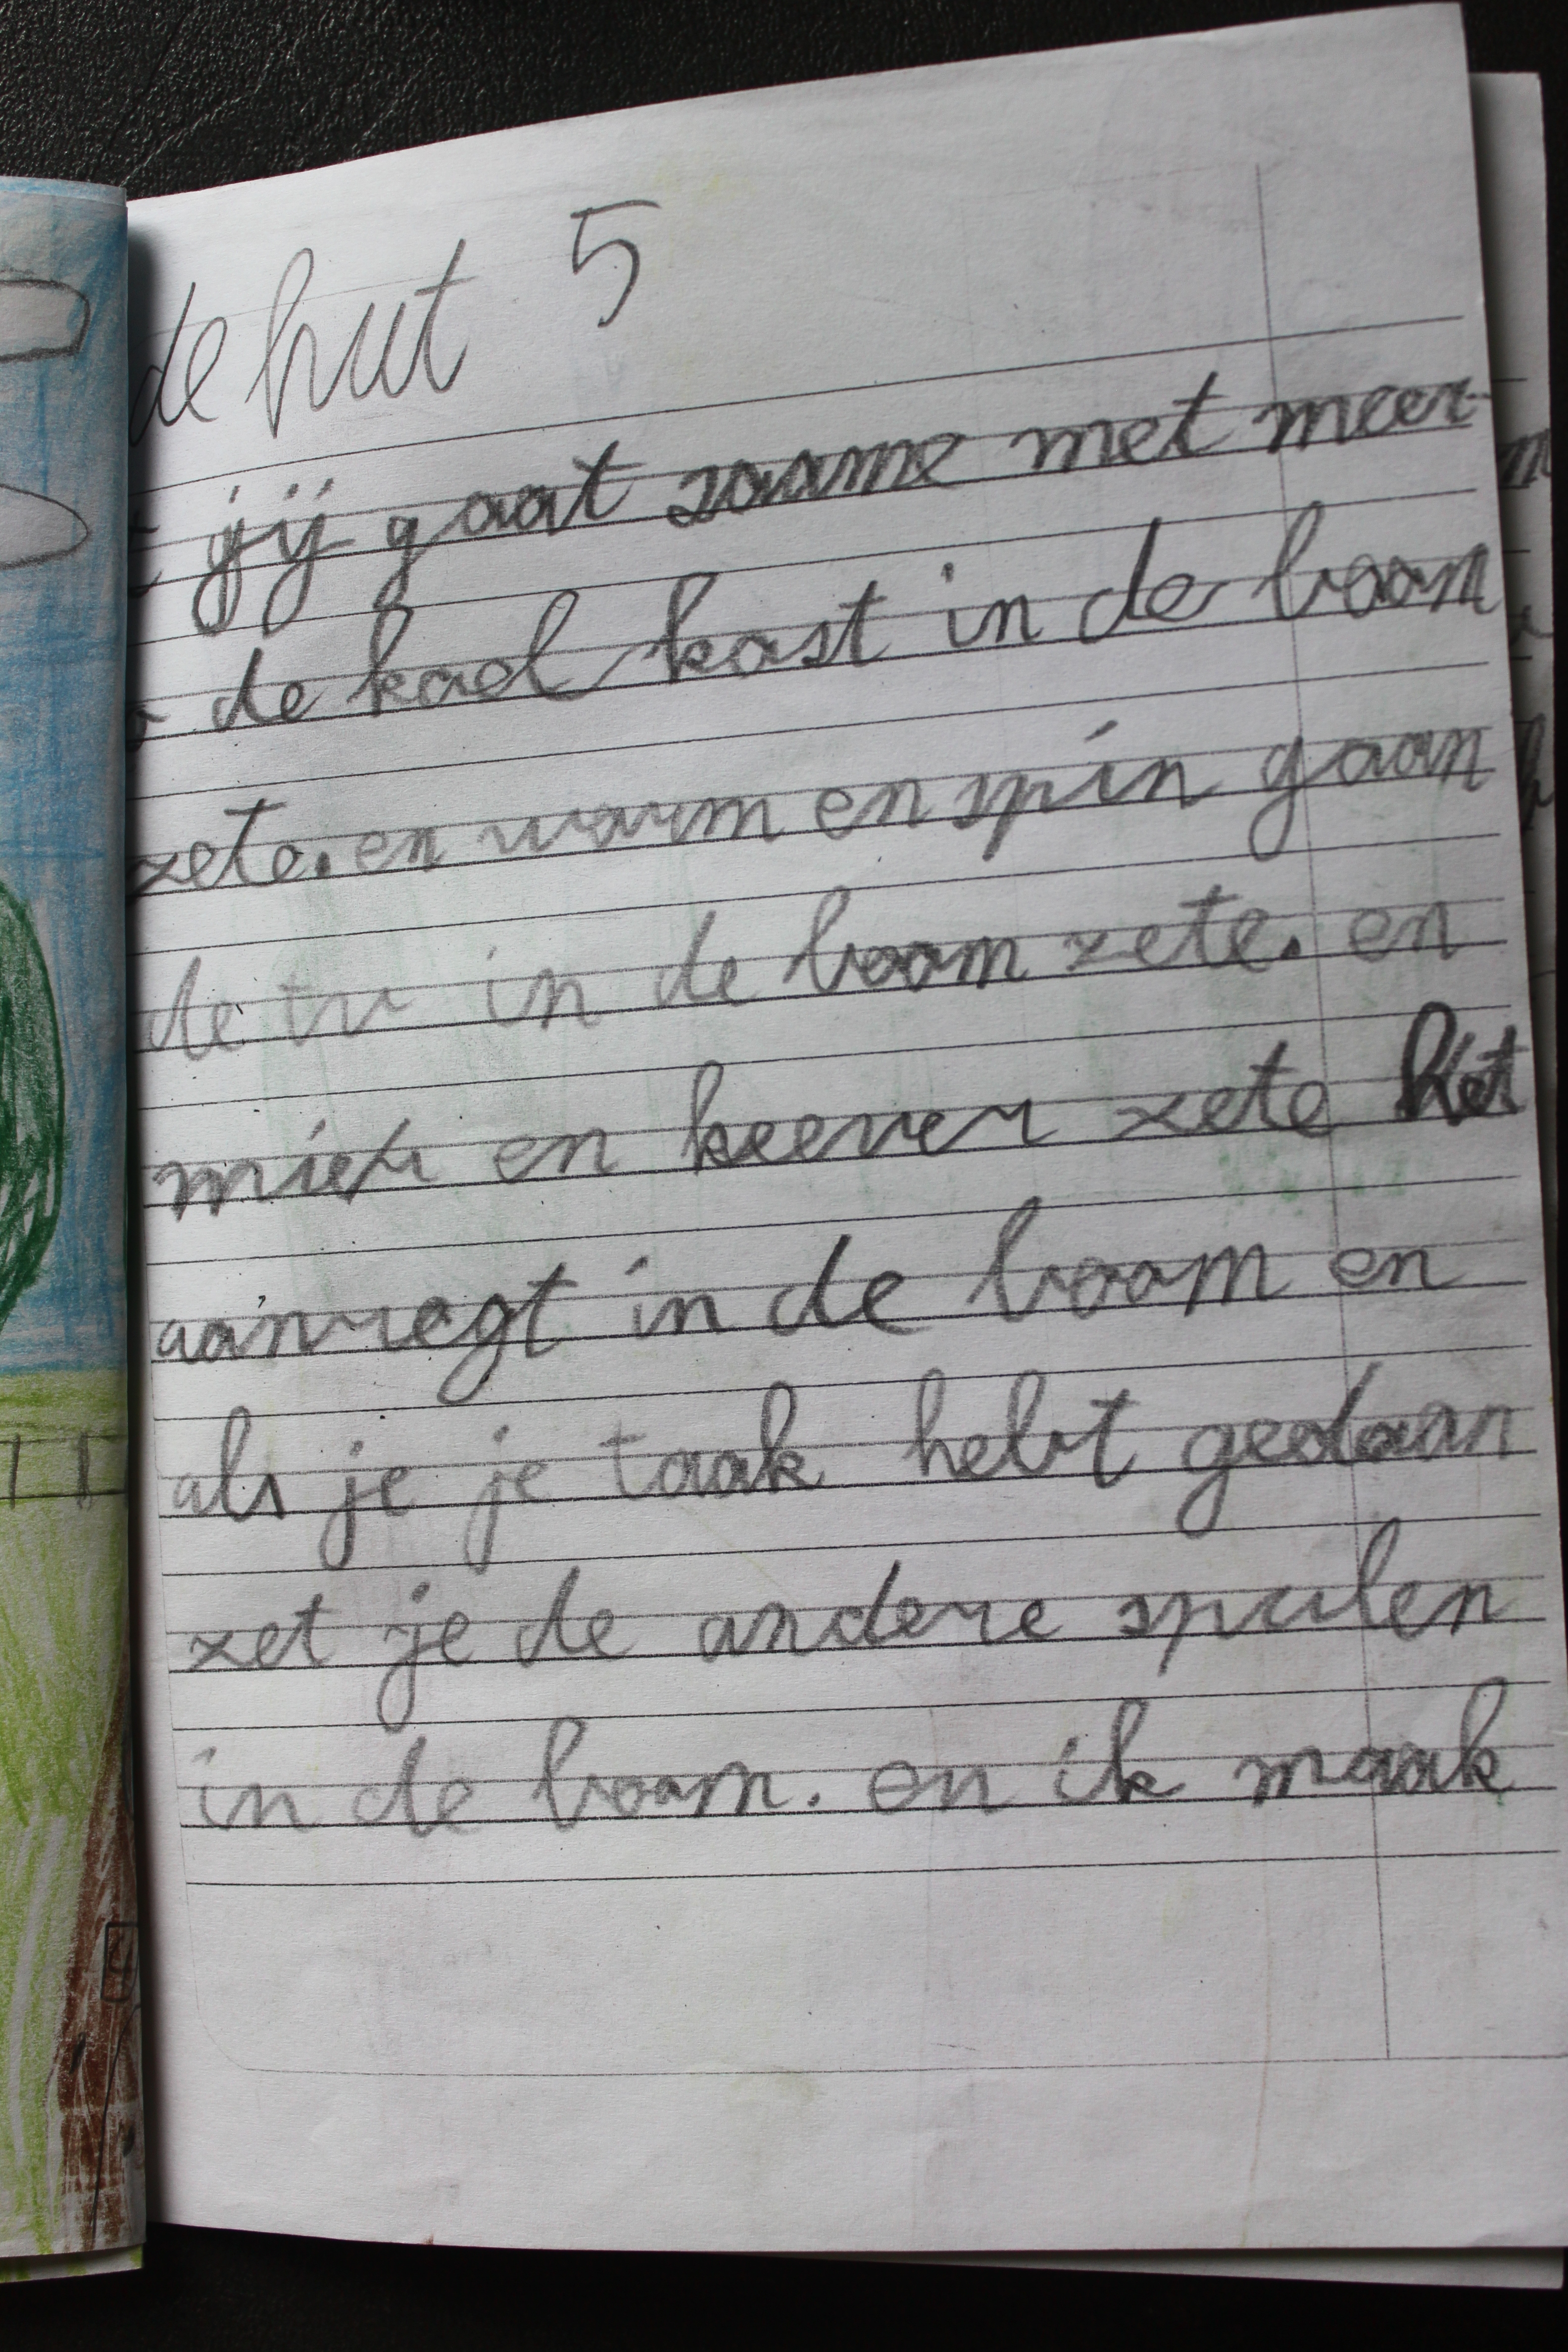 de hut 5
jij gaat saame met meer-
de koel kast in de boom
zete. en worm en spin gaan
de tv in de boom zete. en
mier en keever zete het
aanregt in de boom en
als je je taak hebt gedaan
zet je de andere spulen
in de boom. en ik maak